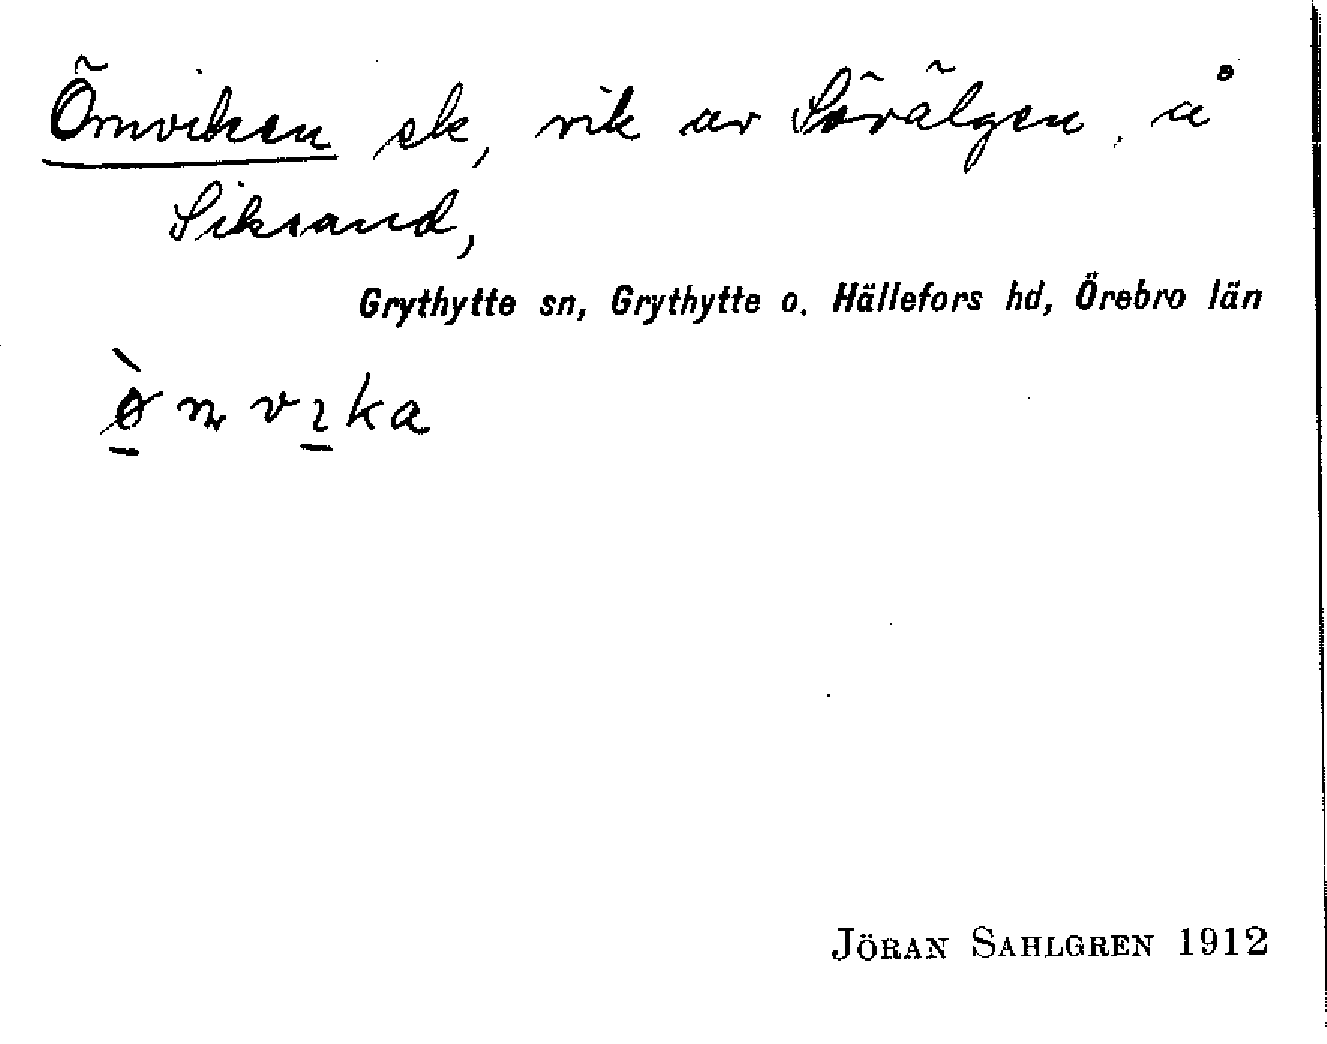 Örnviken ek, vik av Sörälgen, å
Siksand,
Grythytte sn, Grythytte o. Hällefors hd, Örebro län
ø̀nvıka
JÖRAN SAHLGREN 1912